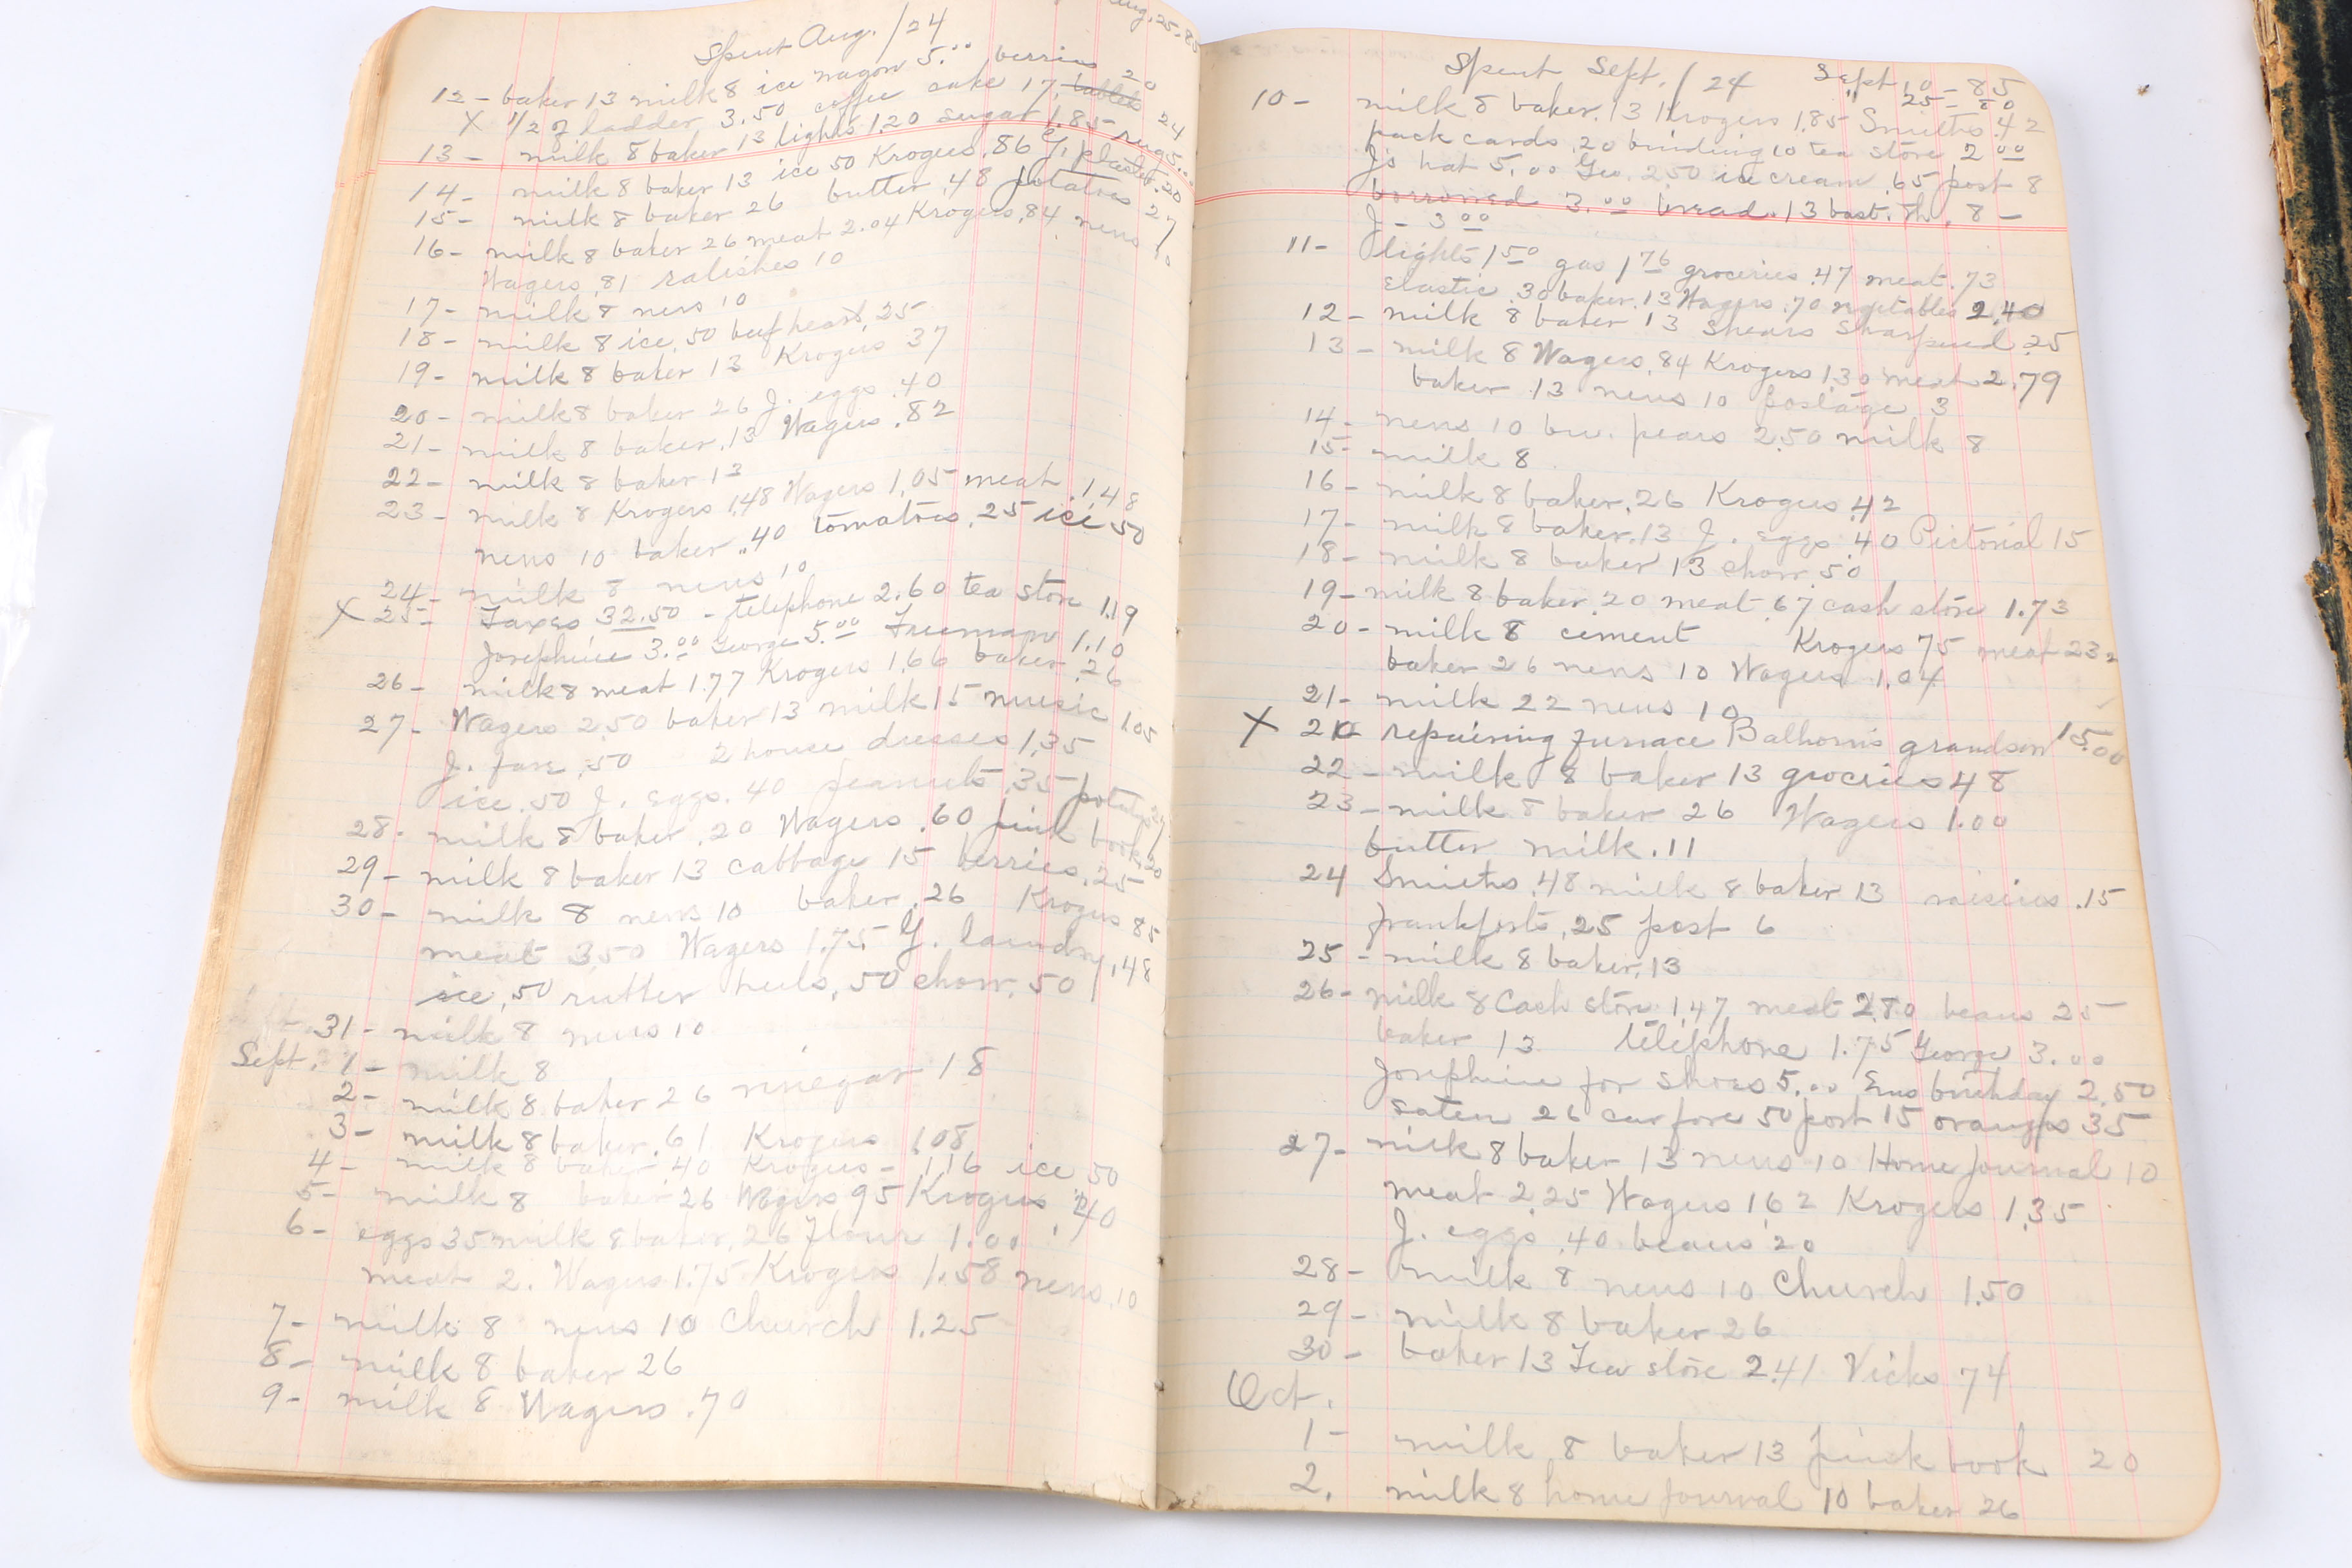 Aug. 25-85
Spent Aug. / 24
12 - baker 13 milk 8 ice wagon 5.00 berries 20
X 1/2 of ladder 3.50 coffee cake 17, 24
13 - milk 8 baker 13 lights 1.20 sugar 1.85 rug 5.00
14 - milk 8 baker 13 ice 50 Krogers .86 G. plaster .20
15 - milk 8 baker 26 butter .48 potatoes 27
16 - milk 8 baker 26 meat 2.04 Krogers .84 news 10
Wagers .81 ralishes 10
17 - milk 8 news 10
18 - milk 8 ice .50 beef heart .25
19 - milk 8 baker 13 Krogers 37
20 - milk 8 baker 26 J. eggs .40
21 - milk 8 baker .13 Wagers .82
22 - milk 8 baker 13
23 - milk 8 Krogers 1.48 Wagers 1.05 meat 1.48
news 10 baker .40 tomatoes .25 ice 50
24 - milk 8 news 10
X 25 - Taxes 32.50 - telephone 2.60 tea store 1.19
Josephine 3.00 George 5.00 Freeman 1.10
26 - milk 8 meat 1.77 Krogers 1.66 baker .26
27 - Wagers 2.50 baker 13 milk 15 music 1.05
J. fare .50 2 house dresses 1.35
ice .50 J. eggs .40 peanuts .35
28 - milk 8 baker .20 Wagers .60 pink book 20
29 - milk 8 baker 13 cabbage 15 berries .25
30 - milk 8 news 10 baker .26 Krogers 85
meat 3.50 Wagers 1.75 G. laundry .48
ice .50 rutter heels .50 show .50
31 - milk 8 news 10
Sept. 1 - milk 8
2 - milk 8 baker 26 vinegar 18
3 - milk 8 baker .61 Krogers 1.08
4 - milk 8 baker 40 Krogers - 1.16 ice 50
5 - milk 8 baker 26 Wagers 95 Krogers
6 - eggs 35 milk 8 baker .26 flour 1.00
meat 2. Wagers 1.75 Krogers 1.58 news .10
7 - milk 8 news 10 Church 1.25
8 - milk 8 baker 26
9 - milk 8 Wagers .70
Spent Sept. / 24 Sept 10 - 85
" 25 - 80
10 - milk 8 baker .13 Krogers 1.85 Smiths .42
pack cards .20 binding 10 tea store 2.00
J's hat 5.00 Geo. 2.50 ice cream .65 post 8
borrowed 3.00 bread .13 8 -
J - 3.00
11 - lights 1.50 gas 1.76 groceries .47 meat .73
Elastic .30 baker .13 Wagers .70 vegetables 2.40
12 - milk 8 baker 13 shears sharpened .25
13 - milk 8 Wagers .84 Krogers 1.30 meat 2.79
baker 13 news 10 postage 3
14 - news 10 bu. pears 2.50 milk 8
15 - milk 8
16 - milk 8 baker .26 Krogers .42
17 - milk 8 baker .13 J. eggs .40 Pictorial 15
18 - milk 8 baker 13 show .50
19 - milk 8 baker .20 meat .67 cash store 1.73
20 - milk 8 cement Krogers 75 meat 232
baker 26 news 10 Wagers 1.04
21 - milk 22 news 10
X 20 repairing furnace Balhorn's grandson 15.00
22 - milk 8 baker 13 groceries 48
23 - milk 8 baker 26 Wagers 1.00
butter milk .11
24 Smiths .48 milk 8 baker 13 raisins .15
frankforts .25 post 6
25 - milk 8 baker .13
26 - milk 8 Cash store 1.47 meat 2.80 beans 25
baker 13 telephone 1.75 George 3.00
Josephine for shoes 5.00 Ems birthday 2.50
saten 26 car fare 50 post 15 oranges 35
27 - milk 8 baker 13 news 10 Home Journal 10
meat 2.25 Wagers 162 Krogers 1.35
J. eggs .40 beans 20
28 - milk 8 news 10 Church 1.50
29 - milk 8 baker 26
30 - baker 13 Tea store 2.41 Vicks 74
Oct.
1 - milk 8 baker 13 pink book 20
2. milk 8 home journal 10 baker 26